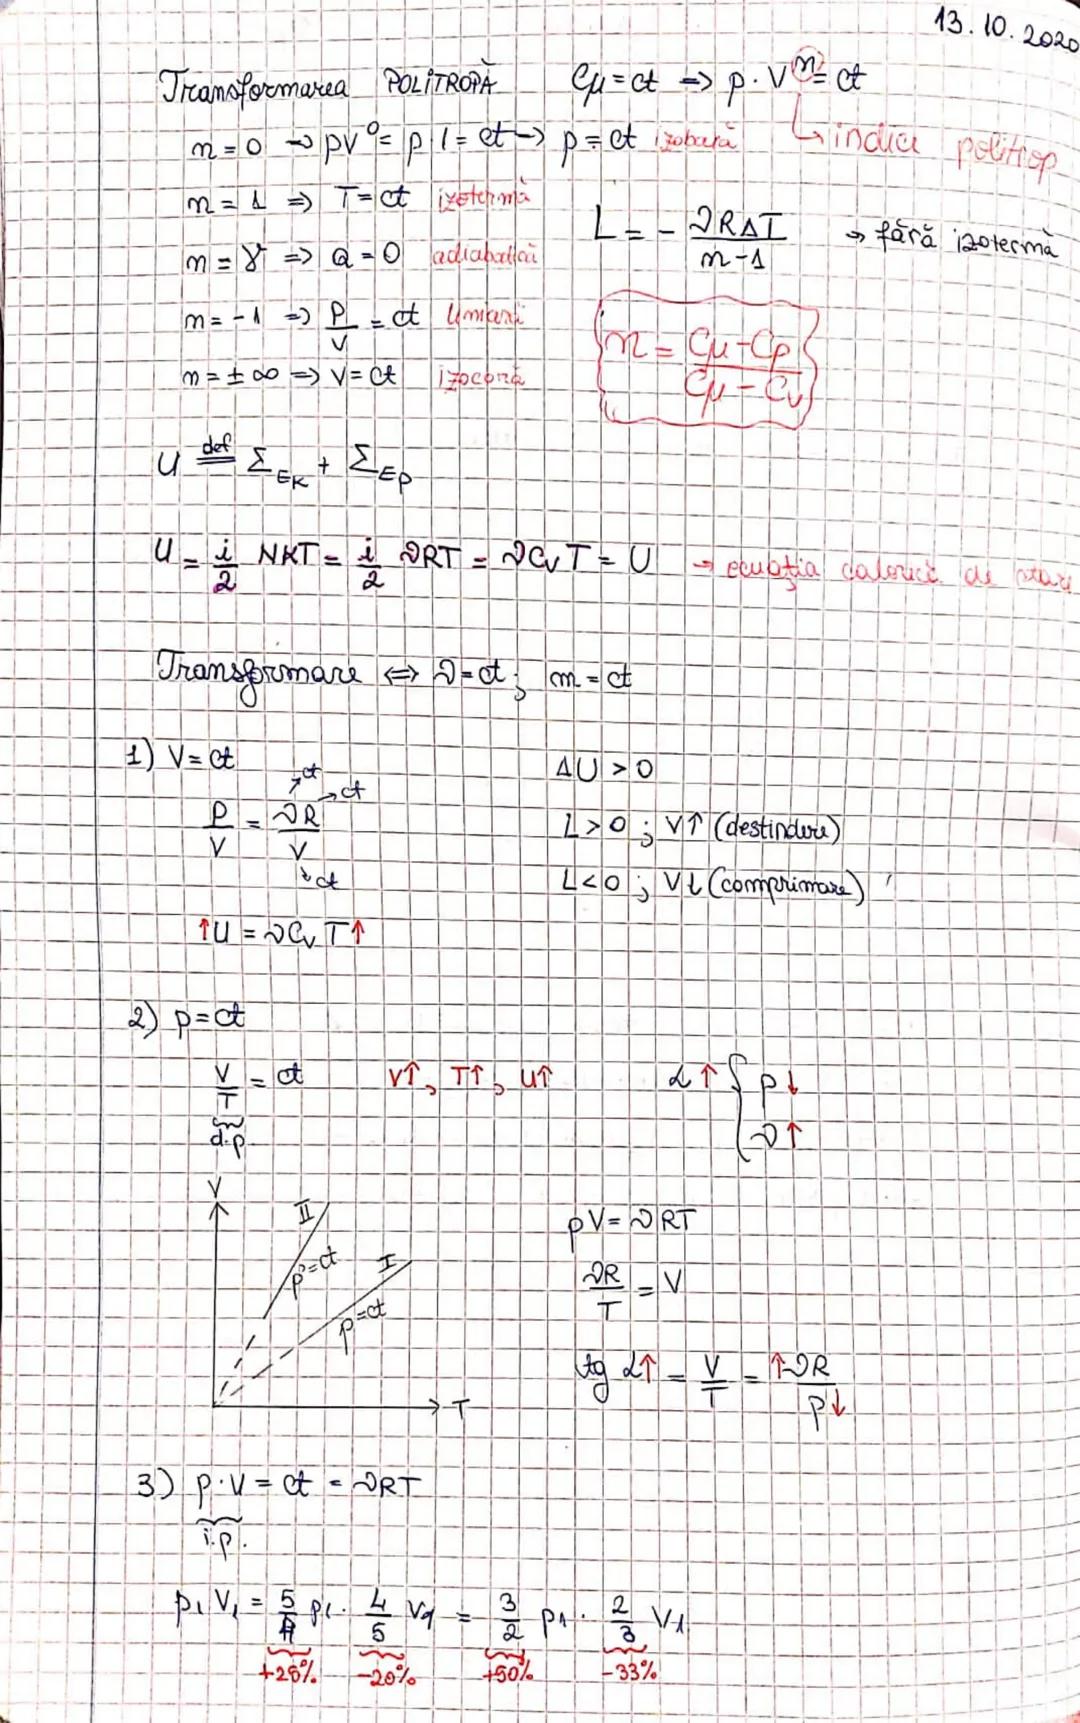 13.10.2020
Transformarea POLITROPĂ Cμ=ct → p·Vⁿ=ct
↳ indice politrop
n=0 → pV⁰= p·1=ct → p=ct izobară
n=1 ⇒ T=ct izotermă
L= - νRΔT/(n-1) → fără izotermă
n=γ ⇒ Q=0 adiabatică
n=-1 ⇒ P/V =ct liniară
n = (Cμ-Cp)/(Cμ-Cv)
n=±∞ ⇒ V=ct izocoră
U def= Σ_EK + Σ_Ep
U = i/2 NKT = i/2 νRT = νCvT = U → ecuația calorică de stare
Transformare ⇔ ν=ct; m=ct
1) V=ct
ΔU>0
P/V = νR/V →ct →ct ↳ct
L>0 ; V↑ (destindere)
L<0 ; V↓ (comprimare)
↑U = νCvT↑
2) p=ct
V/T = ct V↑, T↑, U↑ α↑ { p↓
ν↑
d.p
V
II
p'=ct
I
p=ct
T
pV=νRT
νR/T = V
tg α↑ = V/T = ↑νR/p↓
3) p·V=ct = νRT
i.p.
p₁V₁ = 5/4 p₁ · 4/5 V₁ = 3/2 p₁ · 2/3 V₁
+25% -20% +50% -33%